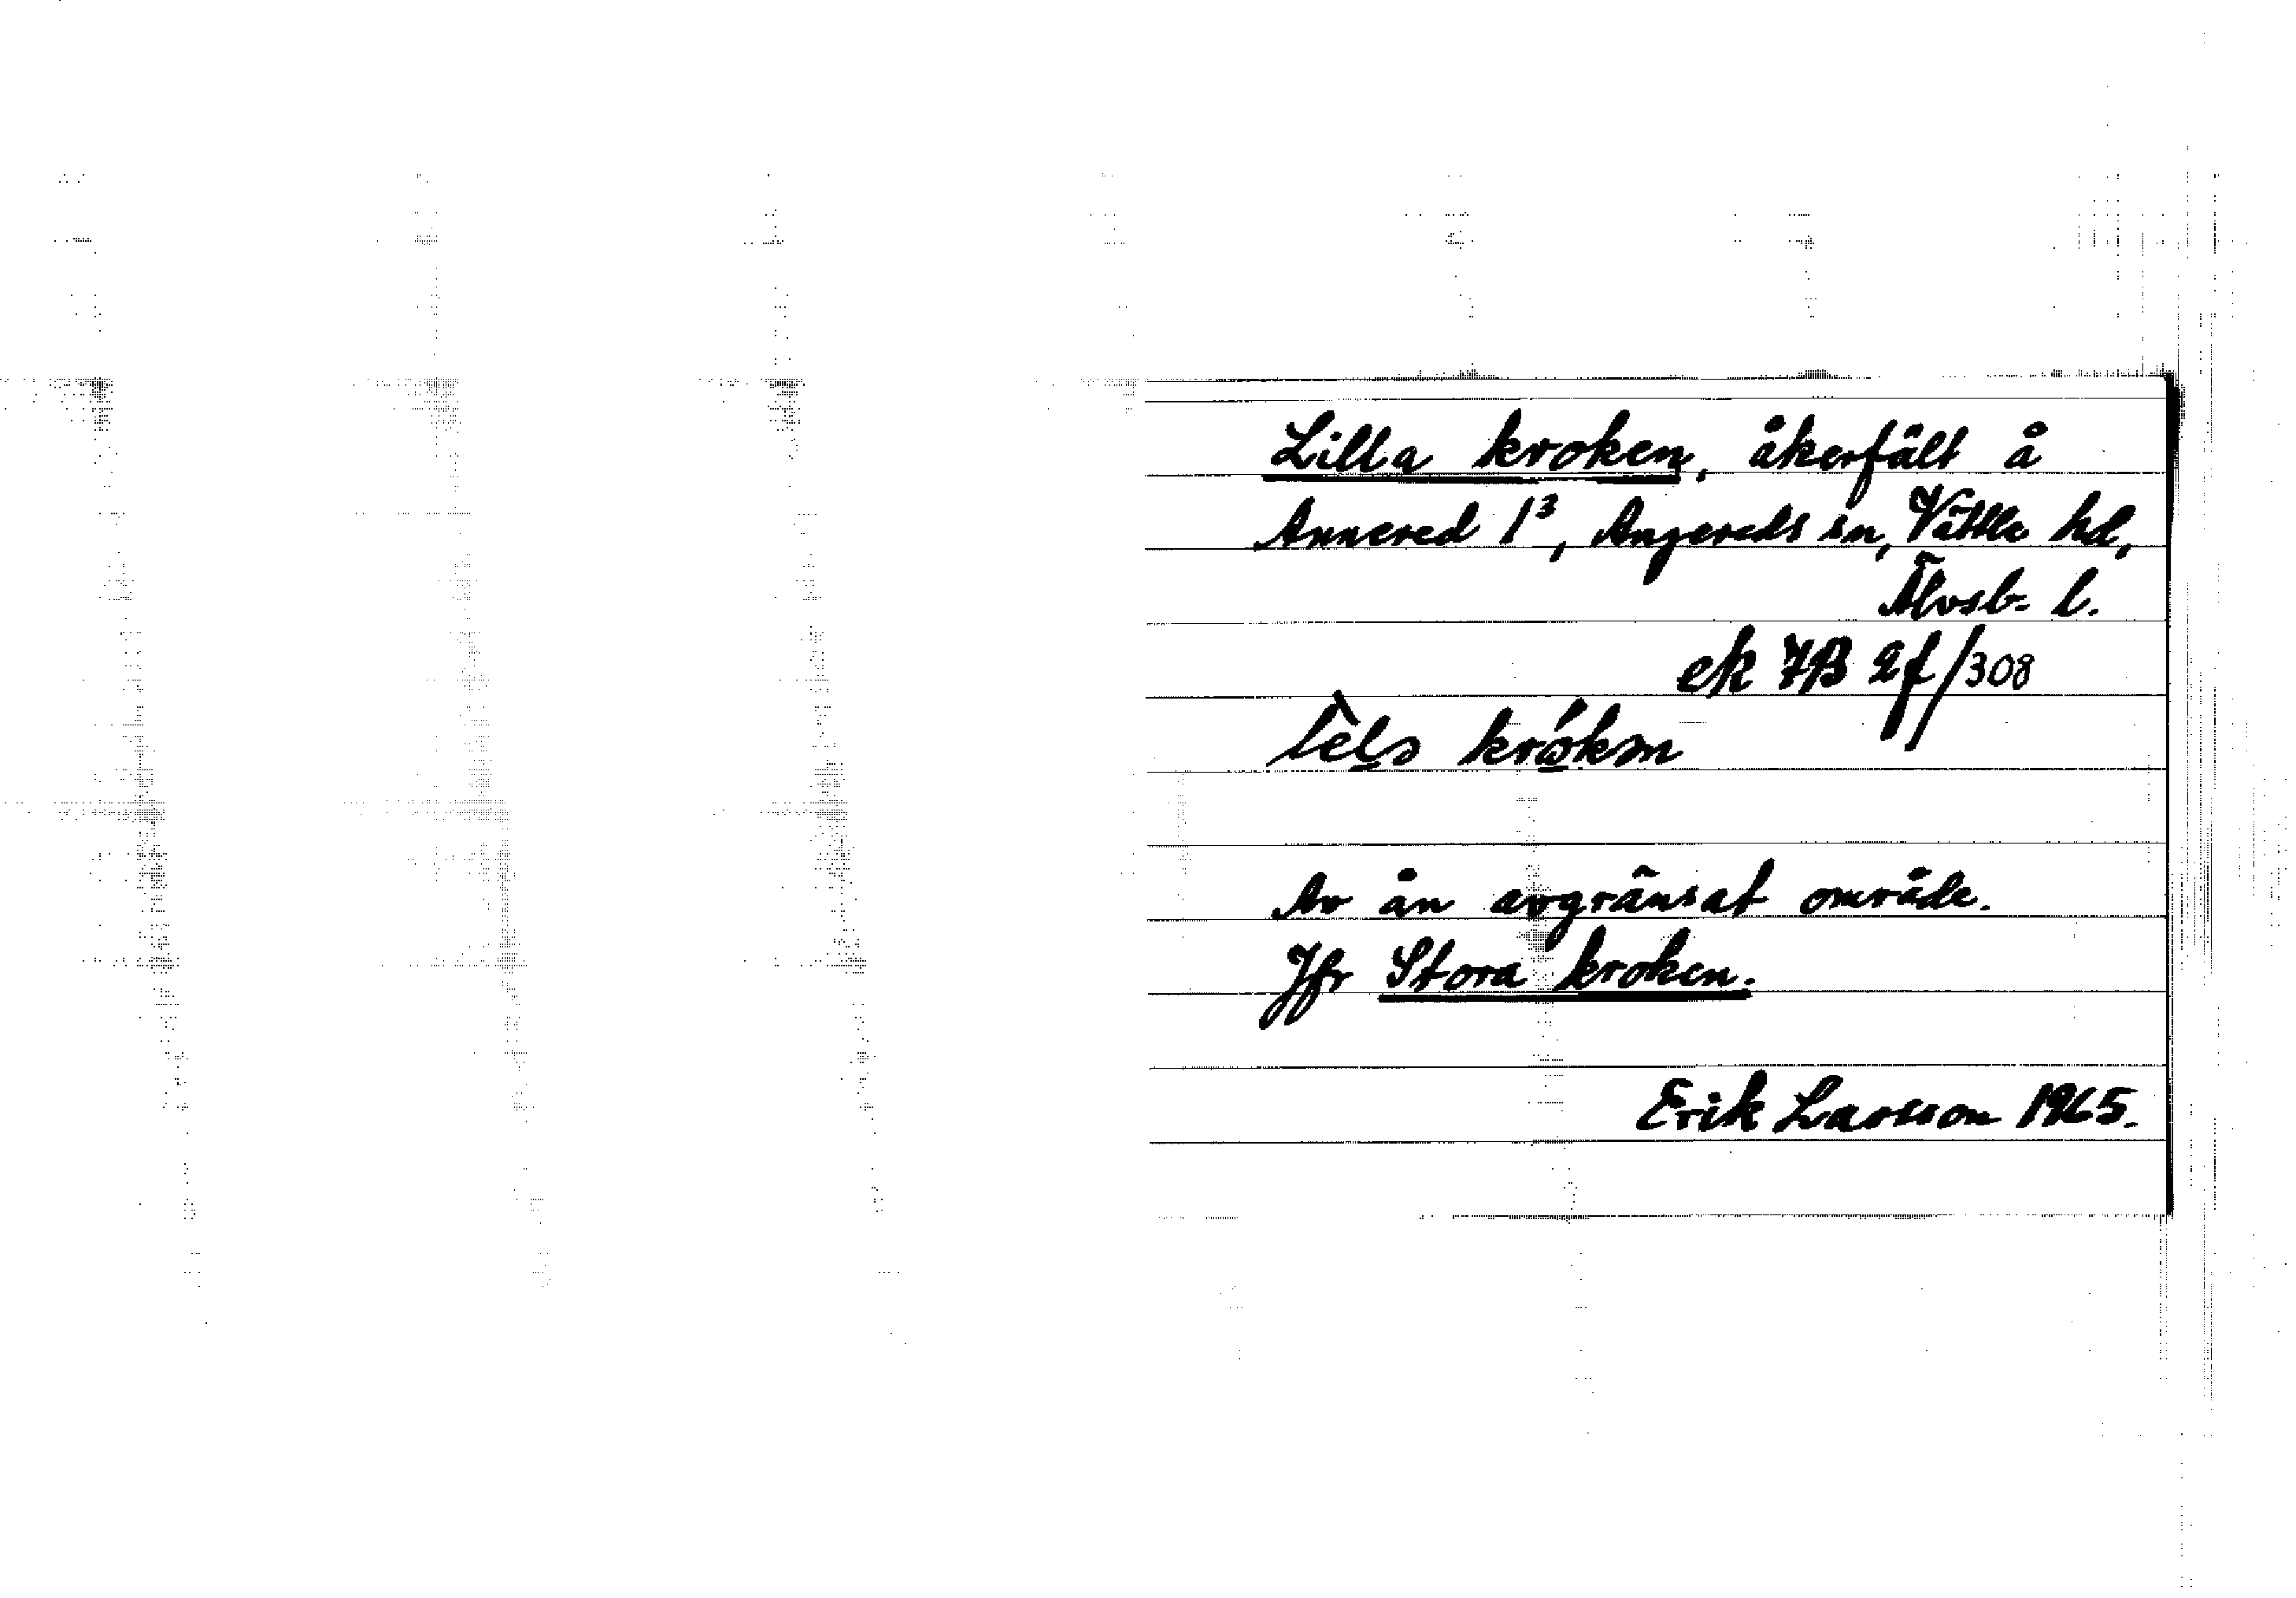 Lilla kroken, åkerfält å
Annered 1³, Angereds sn, Vättle hd,
Älvsb. l.
ek 7B 2f/308
krókm
Av ån avgränsat område.
Jfr Stora kroken.
Erik Larsson 1965.